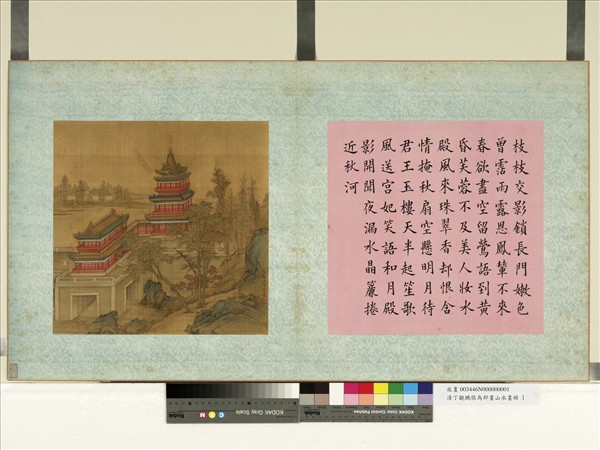 枝枝交影鎖長門嫩色
曾霑雨露恩鳳輦不來
春欲盡空留鶯語到黃
昏芙蓉不及美人妝水
殿風來珠翠香却恨含
情掩秋扇空懸明月待
君王玉樓天半起笙歌
風送宮妃笑語和月殿
影開聞夜漏水晶簾捲
近秋河
故畫 003446N000000001
清丁觀鵬張為邦畫山水畫冊 1
KODAK Gray Scale
KODAK Color Control Patches